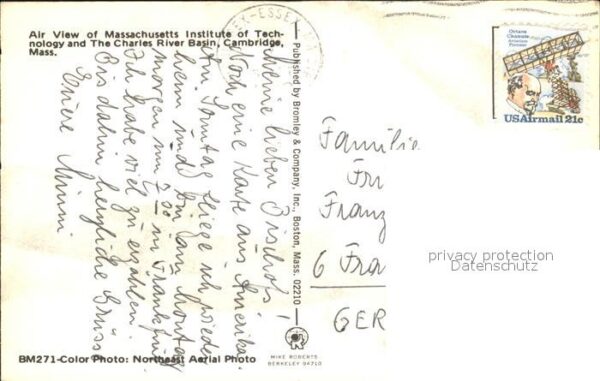 Air View of Massachusetts Institute of Tech-
nology and The Charles River Basin, Cambridge,
Mass.
Meine lieben Bischofs!
Noch eine Karte aus Amerika.
Am Sonntag fliege ich wieder
heim und bin am Montag
morgen um 7.30 in Frankfurt
Ich habe viel zu erzählen.
Bis dahin herzliche Grüsse
Eure
Mimi
BM271-Color Photo: Northeast Aerial Photo
Published by Bromley & Company, Inc., Boston, Mass. 02210
MIKE ROBERTS
BERKELEY 94710
Octave
Chanute
Aviation
Pioneer
USAirmail 21c
Familie
Fr
Franz
6 Fra
GER
privacy protection
Datenschutz